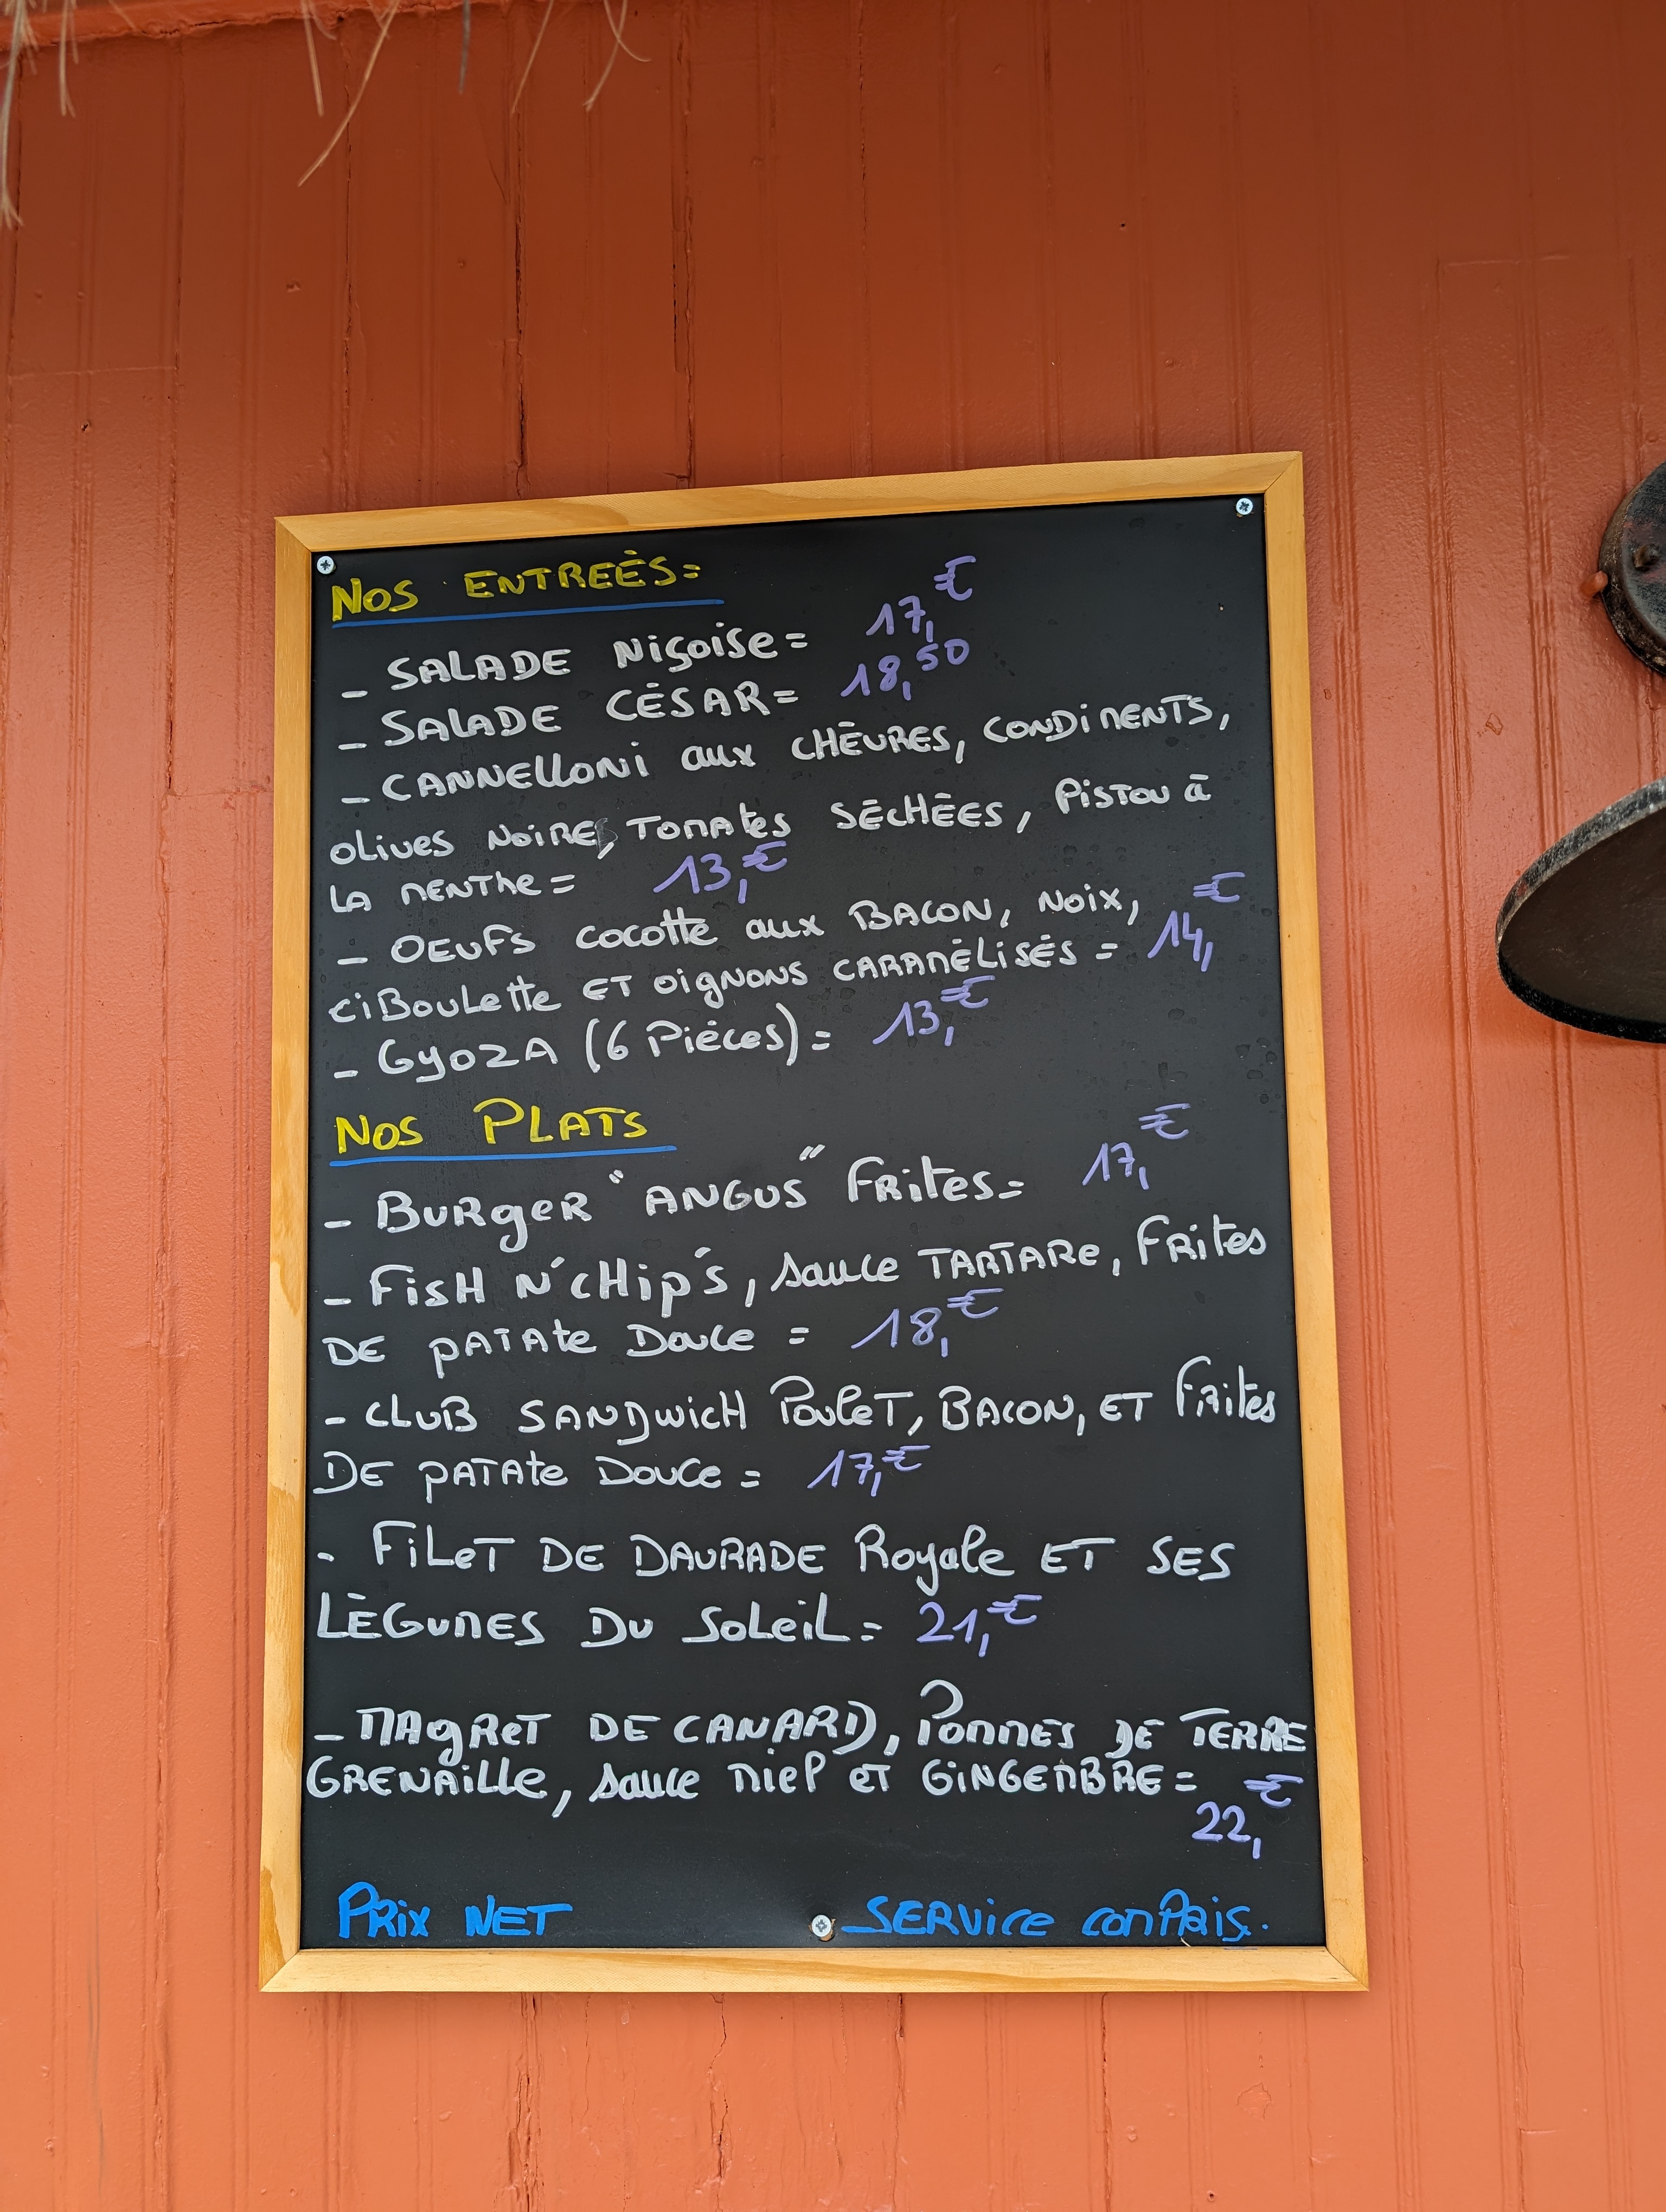 NOS ENTREÉS=
- SALADE Niçoise= 17,€
- SALADE CÉSAR= 18,50
- CANNELLONi aux CHÈVRES, CONDiMENTS,
OLives NOiRE, TOMAtes SÉCHÉES, PiSTOU à
LA MENThe = 13,€
- OEUFS cocotte aux BACON, NOiX,
ciBouLette ET OigNONS CARAMÉLiSÉS = 14,€
- GyOZA (6 Pièces)= 13,€
NOS PLATS
- BURgeR "ANGUS" FRites= 17,€
- FiSH N'CHip's, sauce TARTARe, FRites
DE PATAte Douce = 18,€
- CLUB SANDwicH PouleT, BACON, ET FRites
DE PATAte Douce = 17,€
- FiLeT DE DAURADE Royale ET SES
LÉGUMES DU SOLeiL= 21,€
- MAgReT DE CANARD, POMMES DE TERRE
GRENAiLLe, sauce Miel eT GiNGEMBRE =
22,€
PRiX NET SERVice COMPRiS.